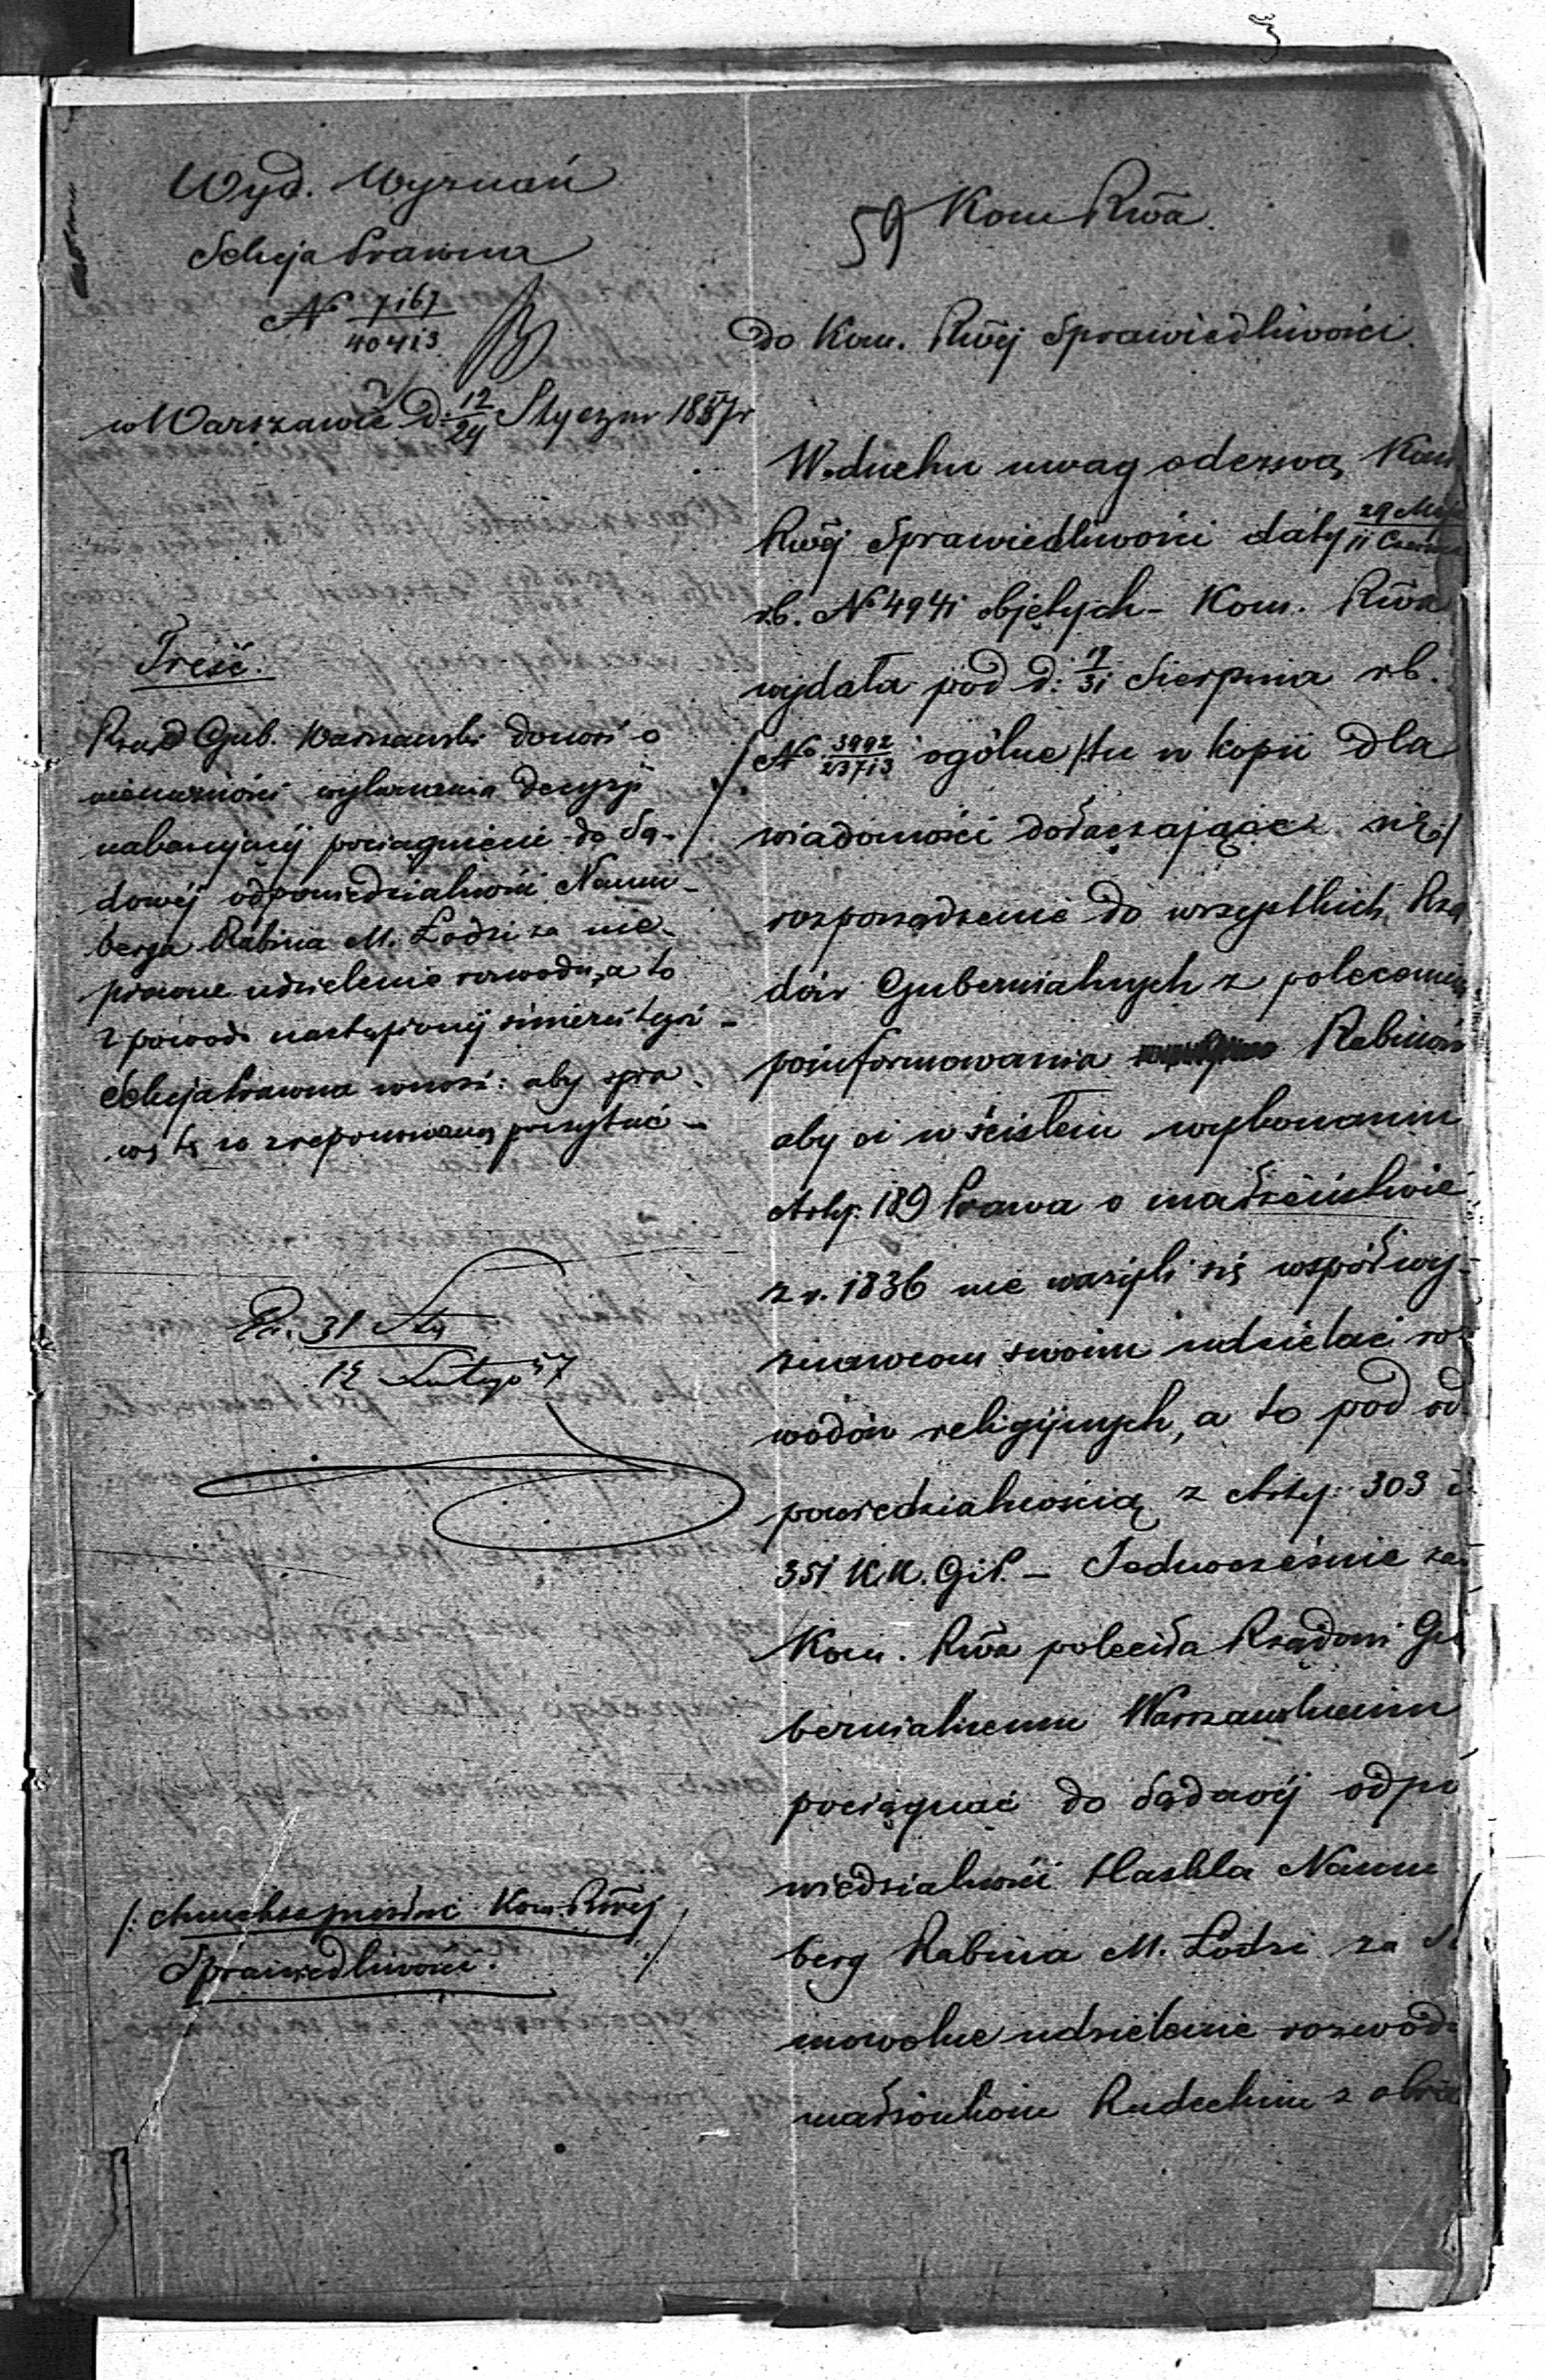 Wyd. Wyznań
Sekcja Prawna
N 7167/40413
w Warszawie d: 12/24 Styczn 1857r
Treść.
Rząd Gub. Warszawski donosi o
niemożności wykonania decyzji
nakazującej pociągnienie do Są-
dowej odpowiedzialności Naum-
berga Rabina M. Łodzi za nie-
prawne udzielenie rozwodu, a to
z powodu nastąpionej śmierci tegoż -
Sekcja Prawna wnosi: aby spra-
wę tę za zreponowaną poczytać -
31 Sty
12 Lutego 57
Kom. Rwej
Sprawiedliwości.
59
Kom Rwa.
do Kom. Rwej Sprawiedliwości.
W duchu uwag odezwą Kom
Rwej Sprawiedliwości daty 29 Maja/11 Czerwca
rb. N 4941 objętych - Kom. Rwa
wydała pod d: 19/31 Sierpnia rb.
N 3992/23713 ogólne /tu w kopii dla
wiadomości dołączające się/
rozporządzenie do wszystkich Rzą
dów Gubernialnych z poleceniem
poinformowania Rabinów
aby ci w ścisłem wykonaniu
Arty. 189 Prawa o małżeństwie
z r. 1836 nie ważyli się współwy-
znawcom swoim udzielać roz
wodów religijnych, a to pod od
powiedzialnością z Arty. 303 i
351 K.K.G.iP. - Jednocześnie zaś
Kom. Rwa poleciła Rządowi Gu
bernialnemu Warszawskiemu
pociągnąć do Sądowej odpo
wiedzialności Haskla Naum
berg Rabina M. Łodzi za Sa
mowolne udzielenie rozwodu
małżonkom Rudechim z obrazą